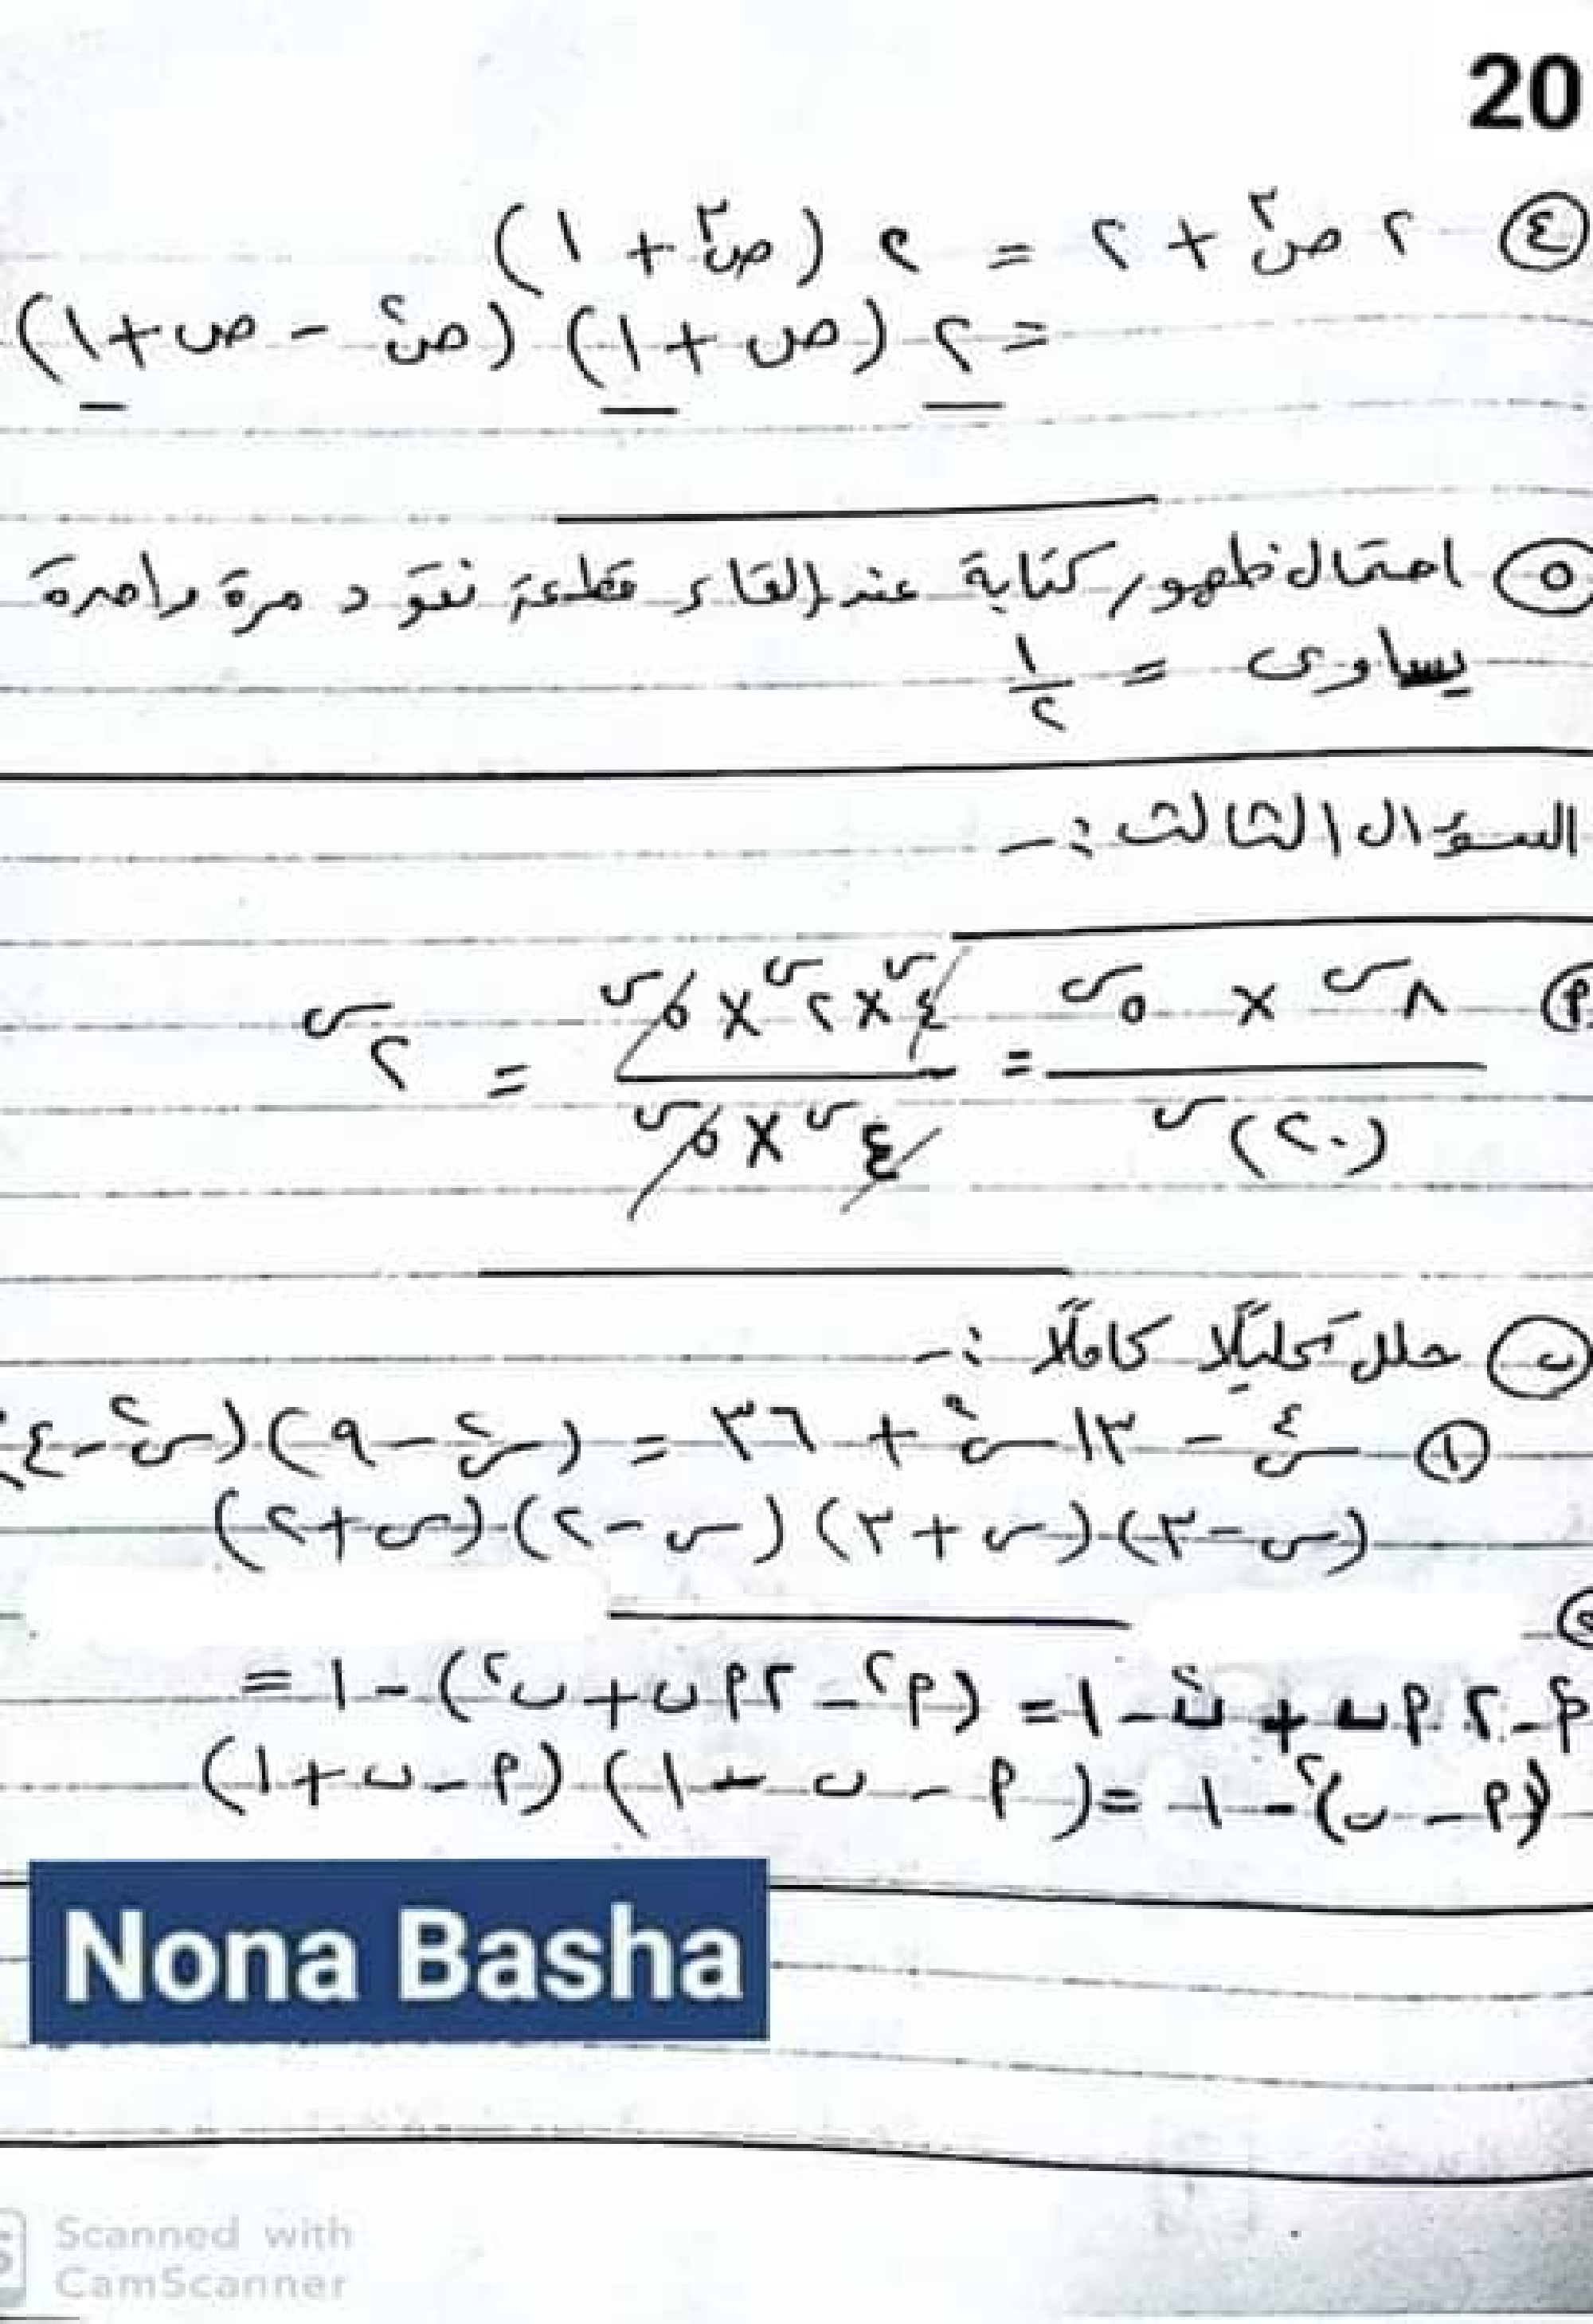 20
٤ ٢ ص٣ + ٢ = ٢ (ص٣ + ١)
= ٢ (ص + ١) (ص٢ - ص + ١)
٥ احتمال ظهور كتابة عند إلقاء قطعة نقود مرة واحدة
يساوى = ١/٢
السؤال الثالث :-
P ٨س × ٥س / (٢٠)س = ٤س × ٢س × ٥س / ٤س × ٥س = ٢س
ب حلل تحليلًا كاملًا :-
١ س٤ - ١٣س٢ + ٣٦ = (س٢ - ٩)(س٢ - ٤)
(س - ٣)(س + ٣)(س - ٢)(س + ٢)
٢
P٢ - ٢Pب + ب٢ - ١ = (P٢ - ٢Pب + ب٢) - ١ =
(P - ب)٢ - ١ = (P - ب - ١)(P - ب + ١)
Nona Basha
Scanned with
CamScanner